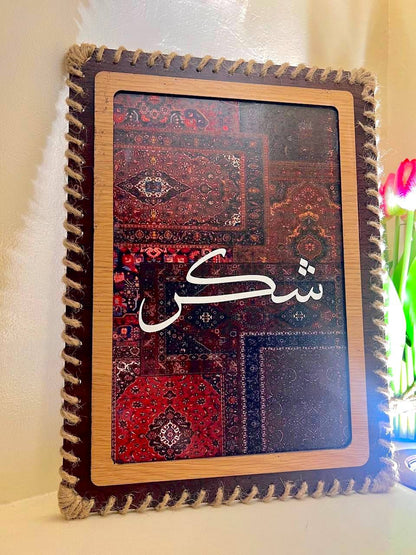 شكر